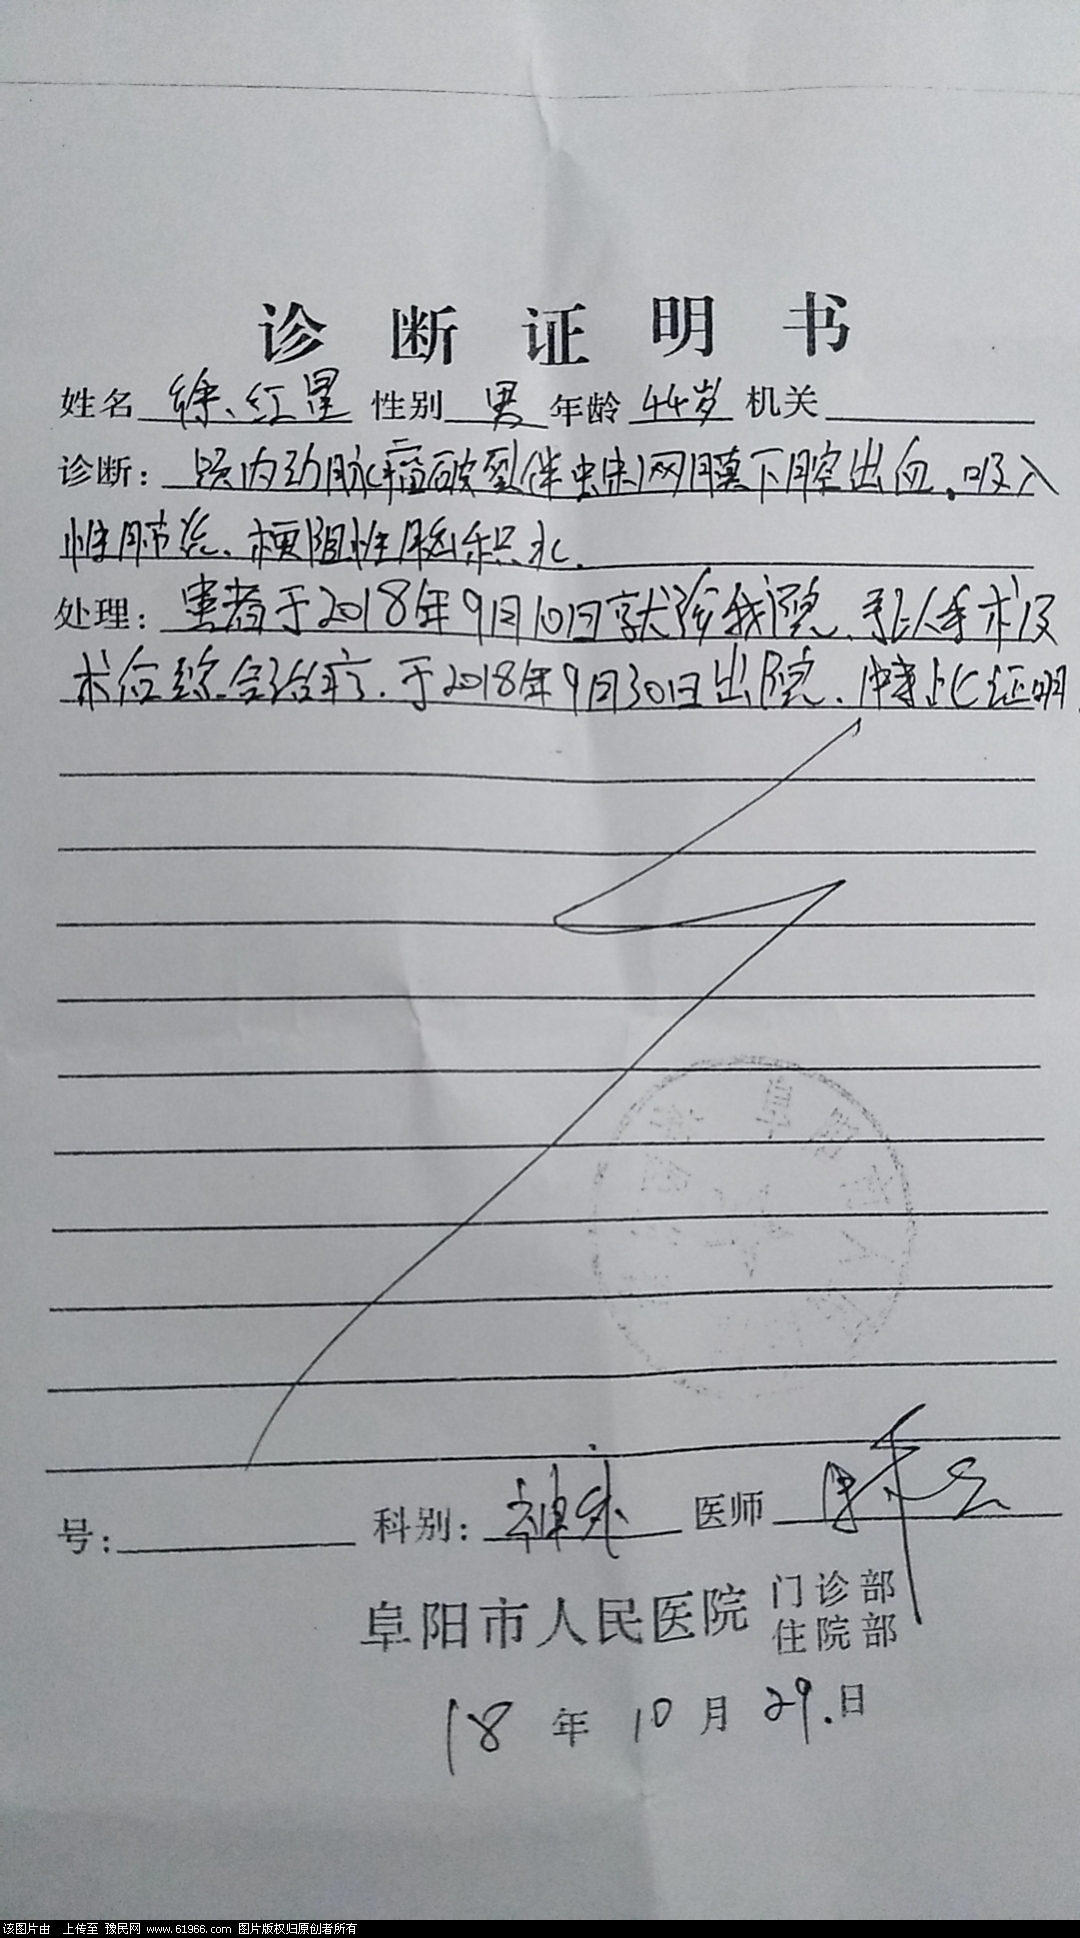 诊断证明书
姓名 徐红星 性别 男 年龄 44岁 机关
诊断: 颅内动脉瘤破裂伴蛛网膜下腔出血.吸入
性肺炎、梗阻性脑积水.
处理: 患者于2018年9月10日就诊我院、予以手术及
术后综合治疗.于2018年9月30日出院、特此证明.
阜阳市人
号: 科别: 神外 医师
阜阳市人民医院 门诊部
住院部
18年10月29.日
该图片由 上传至 豫民网 www.61966.com 图片版权归原创者所有